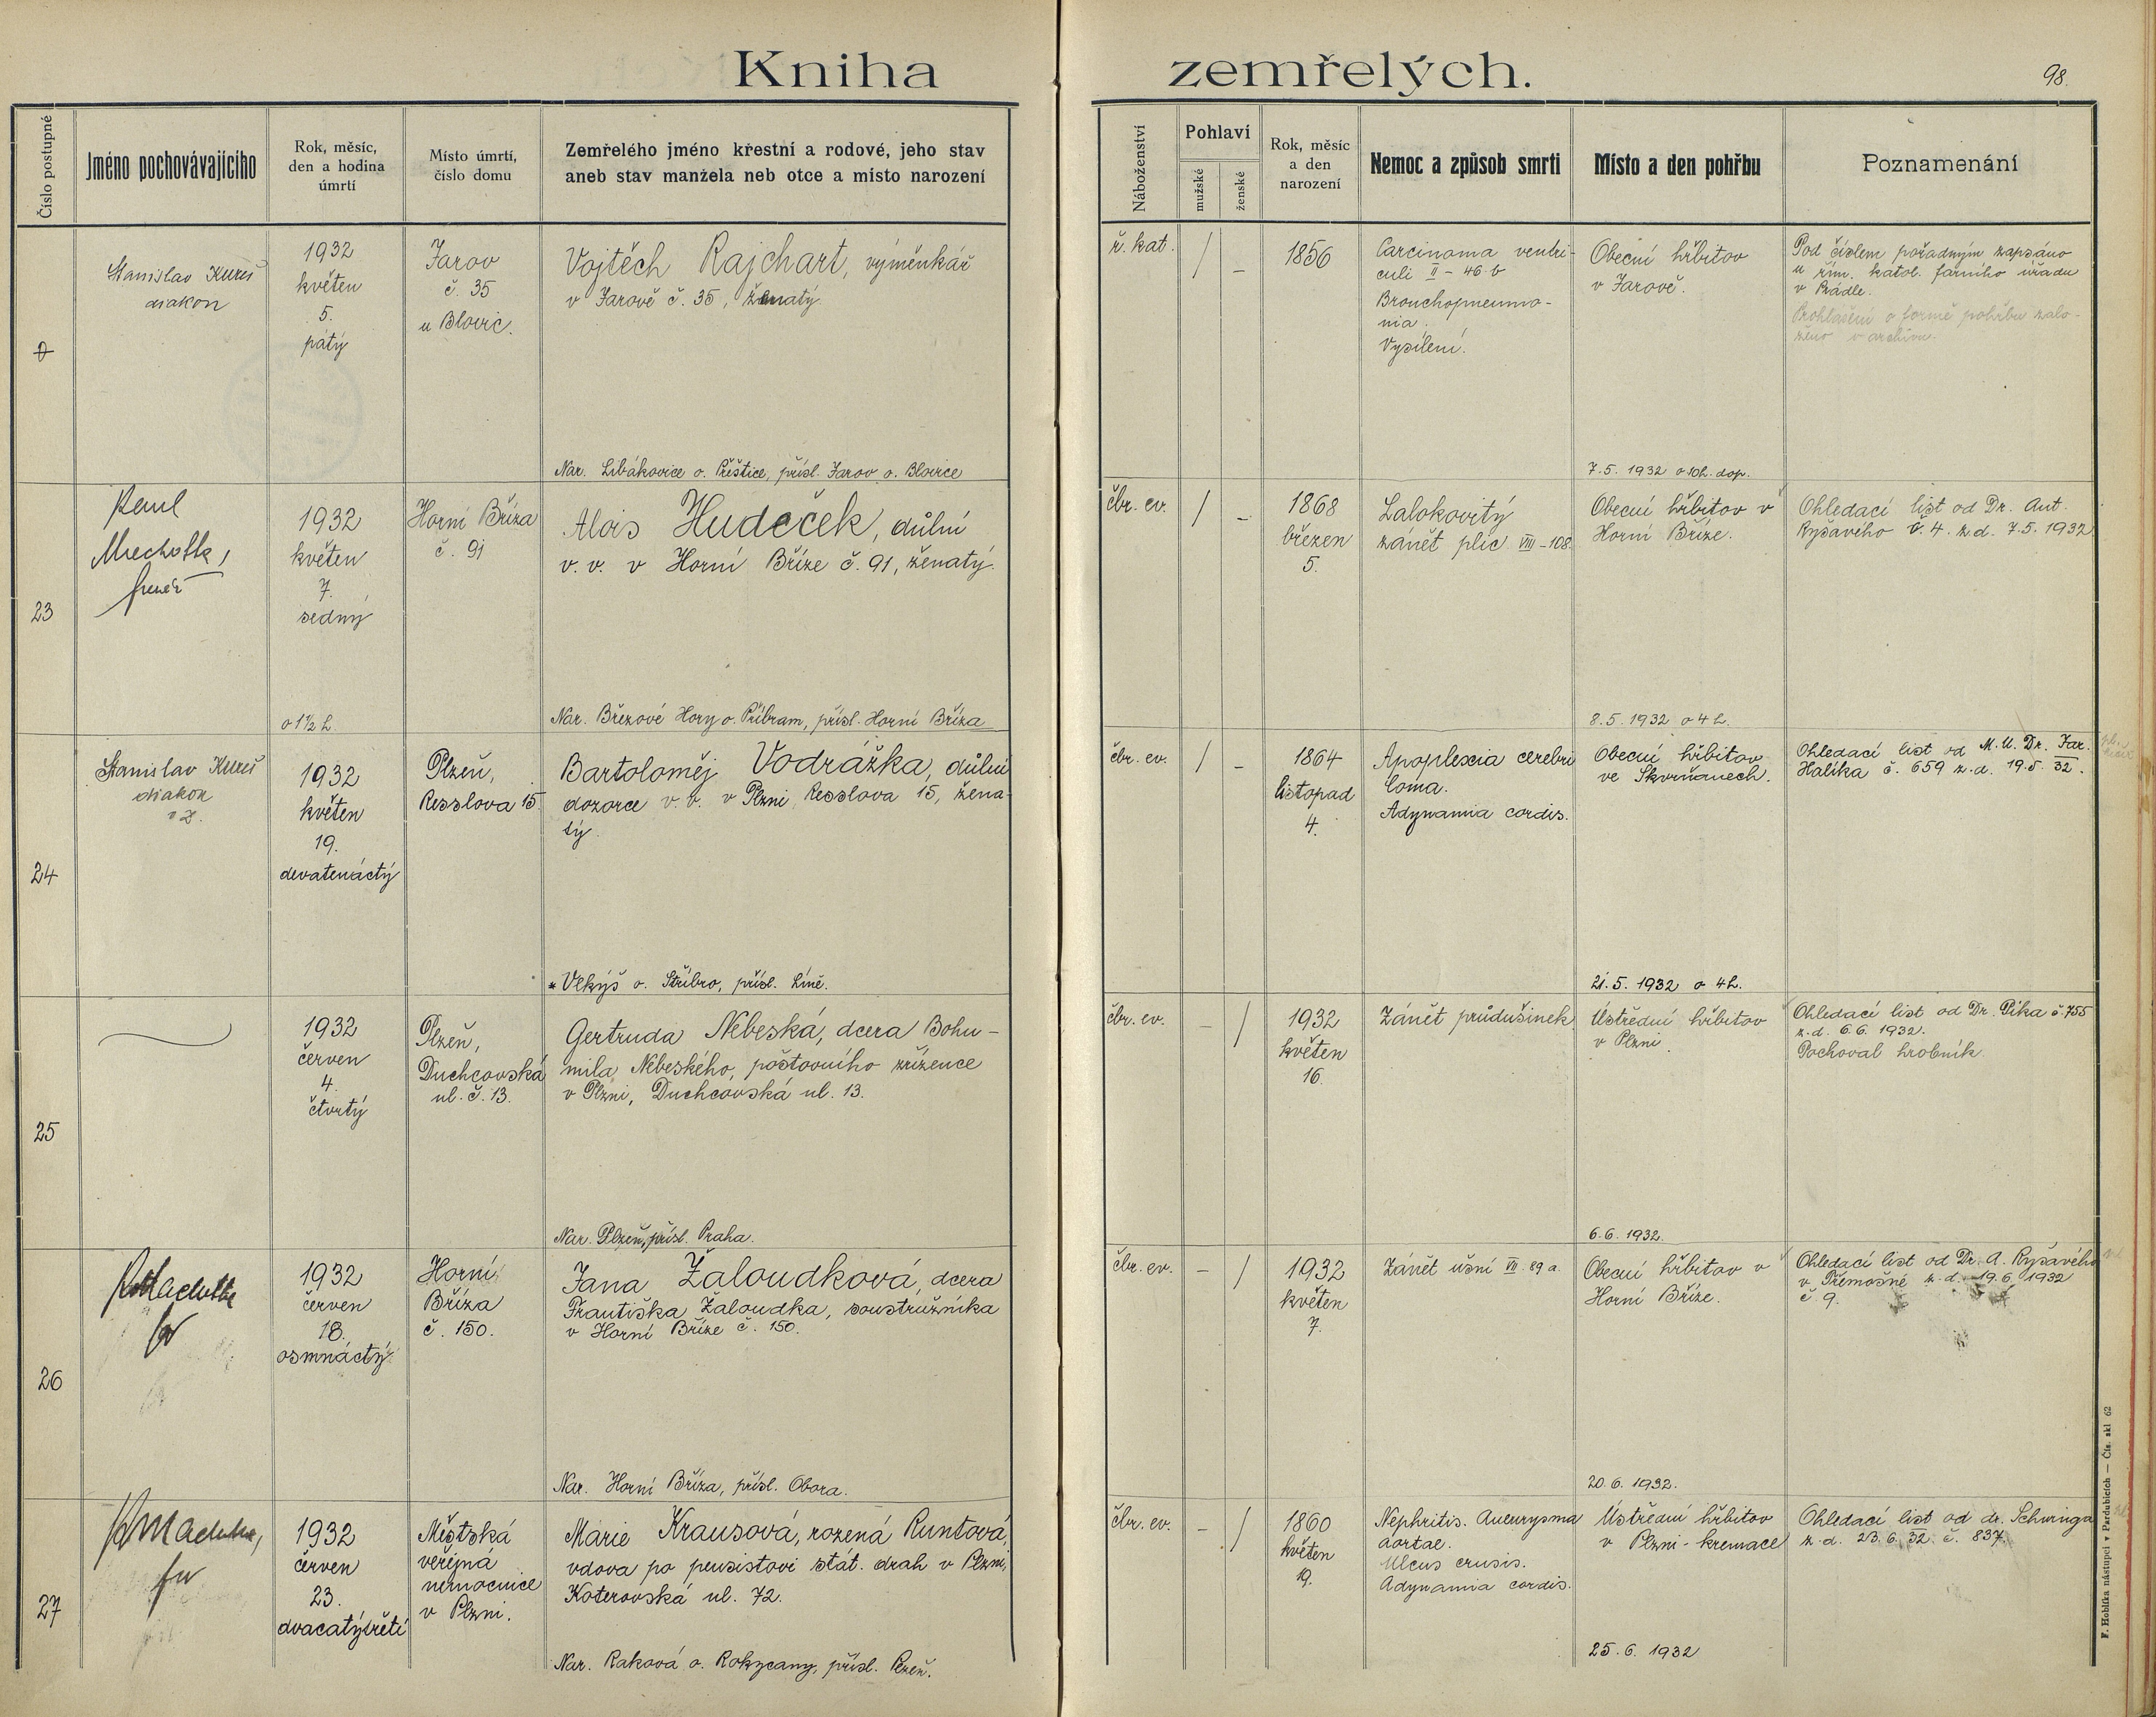 Kniha zemřelých.
98.
Číslo postupné
Jméno pochovávajícího
Rok, měsíc,
den a hodina
úmrtí
Místo úmrtí,
číslo domu
Zemřelého jméno křestní a rodové, jeho stav
aneb stav manžela neb otce a místo narození
Náboženství
Pohlaví
mužské
ženské
Rok, měsíc
a den
narození
Nemoc a způsob smrti
Místo a den pohřbu
Poznamenání
Stanislav Kureš
diakon
1932
květen
5.
pátý
Jarov
č. 35
u Blovic.
Vojtěch Rajchart, výměnkář
v Jarově č. 35, ženatý.
Nar. Libákovice o. Přeštice, přísl. Jarov o. Blovice
ř. kat.
/
–
1856
Carcinoma ventri-
culi II – 46 b
Bronchopneumo-
nia.
Vysílení.
Obecní hřbitov
v Jarově.
7.5. 1932 o 10 h. dop.
Pod číslem pořadným zapsáno
u řím. katol. farního úřadu
v Prádle.
Prohlášení o formě pohřbu zalo-
ženo v archivu.
23
1932
květen
7.
sedmý
o 1½ h.
Horní Bříza
č. 91
Alois Hudeček, důlní
v. v. v Horní Bříze č. 91, ženatý.
Nar. Březové Hory o. Příbram, přísl. Horní Bříza
čbr. ev.
/
–
1868
březen
5.
Lalokovitý
zánět plic VIII – 108
Obecní hřbitov v
Horní Bříze.
8.5. 1932 o 4 h.
Ohledací list od Dr. Ant.
Ryšavého č. 4. z.d. 7.5. 1932
24
Stanislav Kureš
diakon
v z.
1932
květen
19.
devatenáctý
Plzeň,
Resslova 15.
Bartoloměj Vodrážka, důlní
dozorce v. v. v Plzni, Resslova 15, žena-
tý.
* Vlkýš o. Stříbro, přísl. Líně.
čbr. ev.
/
–
1864
listopad
4.
Apoplexia cerebri
Coma.
Adynamia cordis.
Obecní hřbitov
ve Skvrňanech.
21.5. 1932 o 4 h.
Ohledací list od M.U.Dr. Jar.
Halíka č. 659 z.d. 19.5. 32.
25
1932
červen
4.
čtvrtý
Plzeň,
Duchcovská
ul. č. 13.
Gertruda Nebeská, dcera Bohu-
mila Nebeského, poštovního zřízence
v Plzni, Duchcovská ul. 13.
Nar. Plzeň, přísl. Praha.
čbr. ev.
–
/
1932
květen
16.
Zánět průdušinek
Ústřední hřbitov
v Plzni.
6.6. 1932.
Ohledací list od Dr. Píka č. 755
z.d. 6.6. 1932.
Pochoval hrobník.
26
1932
červen
18.
osmnáctý
Horní
Bříza
č. 150.
Jana Žaloudková, dcera
Františka Žaloudka, soustružníka
v Horní Bříze č. 150.
Nar. Horní Bříza, přísl. Obora.
čbr. ev.
–
/
1932
květen
7.
Zánět ušní VII. 89 a.
Obecní hřbitov v
Horní Bříze.
20.6. 1932.
Ohledací list od Dr. A. Ryšavého
v Třemošné z.d. 19.6. 1932
č. 9.
27
1932
červen
23.
dvacatýtřetí
Městská
veřejná
nemocnice
v Plzni.
Marie Krausová, rozená Runtová,
vdova po pensistovi stát. drah v Plzni,
Koterovská ul. 72.
Nar. Raková o. Rokycany, přísl. Plzeň.
čbr. ev.
–
/
1860
květen
19.
Nephritis. Aneurysma
aortae.
Ulcus crusis.
Adynamia cordis.
Ústřední hřbitov
v Plzni - kremace
25.6. 1932
Ohledací list od dr. Schwinga
z.d. 23.6. 32. č. 837.
F. Hoblíka nástupci v Pardubicích — Čís. skl 62